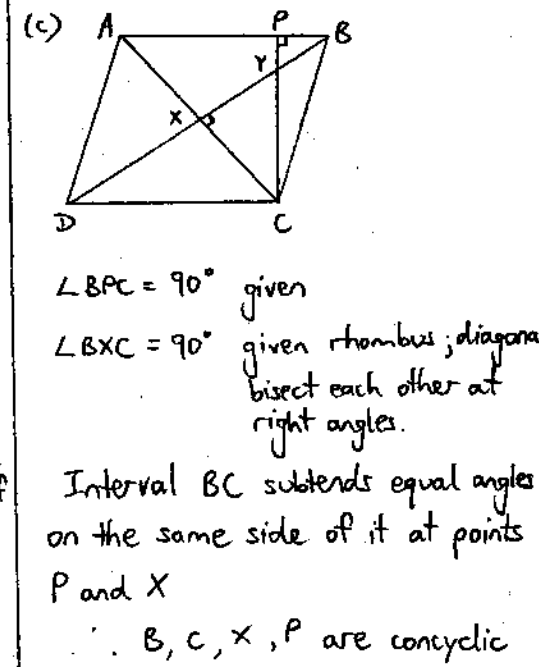 (c)
A P B
Y
X
D C
∠BPC = 90° given
∠BXC = 90° given rhombus; diagona
bisect each other at
right angles.
Interval BC subtends equal angles
on the same side of it at points
P and X
∴ B, C, X, P are concyclic